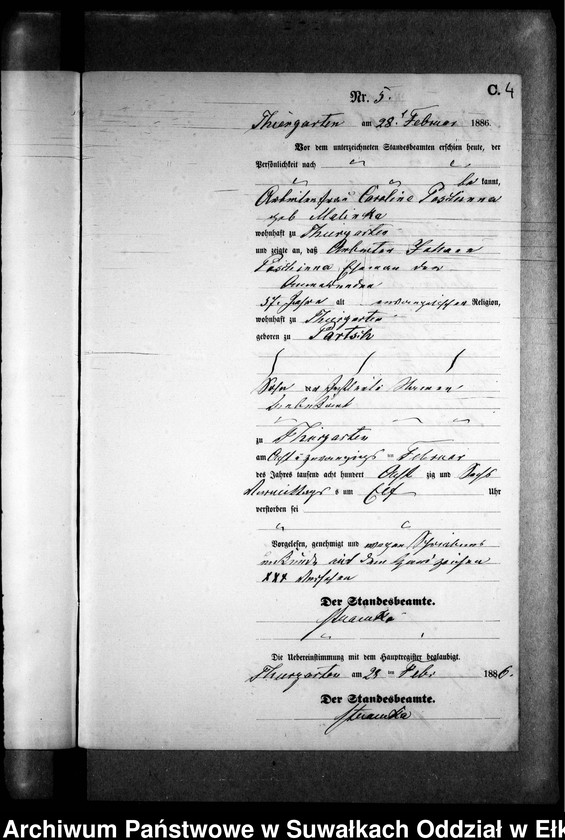 C. 4
Nr. 5.
Thiergarten am 28. Februar 1886.
Vor dem unterzeichneten Standesbeamten erschien heute, der
Persönlichkeit nach
be kannt,
Arbeiterfrau Caroline
geb
wohnhaft zu Thiergarten
und zeigte an, daß Arbeiter Johann
Eheman der
Anmeldenden
57 Jahre alt evangelischer Religion,
wohnhaft zu Thiergarten
geboren zu
Sohn
unbekannt
zu Thiergarten
am Februar
des Jahres tausend acht hundert Acht zig und Sechs
Vormittags um Elf Uhr
verstorben sei
Vorgelesen, genehmigt und wegen Schreibens
unkunde mit dem Handzeichen
XXX versehen
Der Standesbeamte.
Die Uebereinstimmung mit dem Hauptregister beglaubigt.
Thiergarten am 28 ten Febr 1886.
Der Standesbeamte.
Archiwum Państwowe w Suwałkach Oddział w Ełk